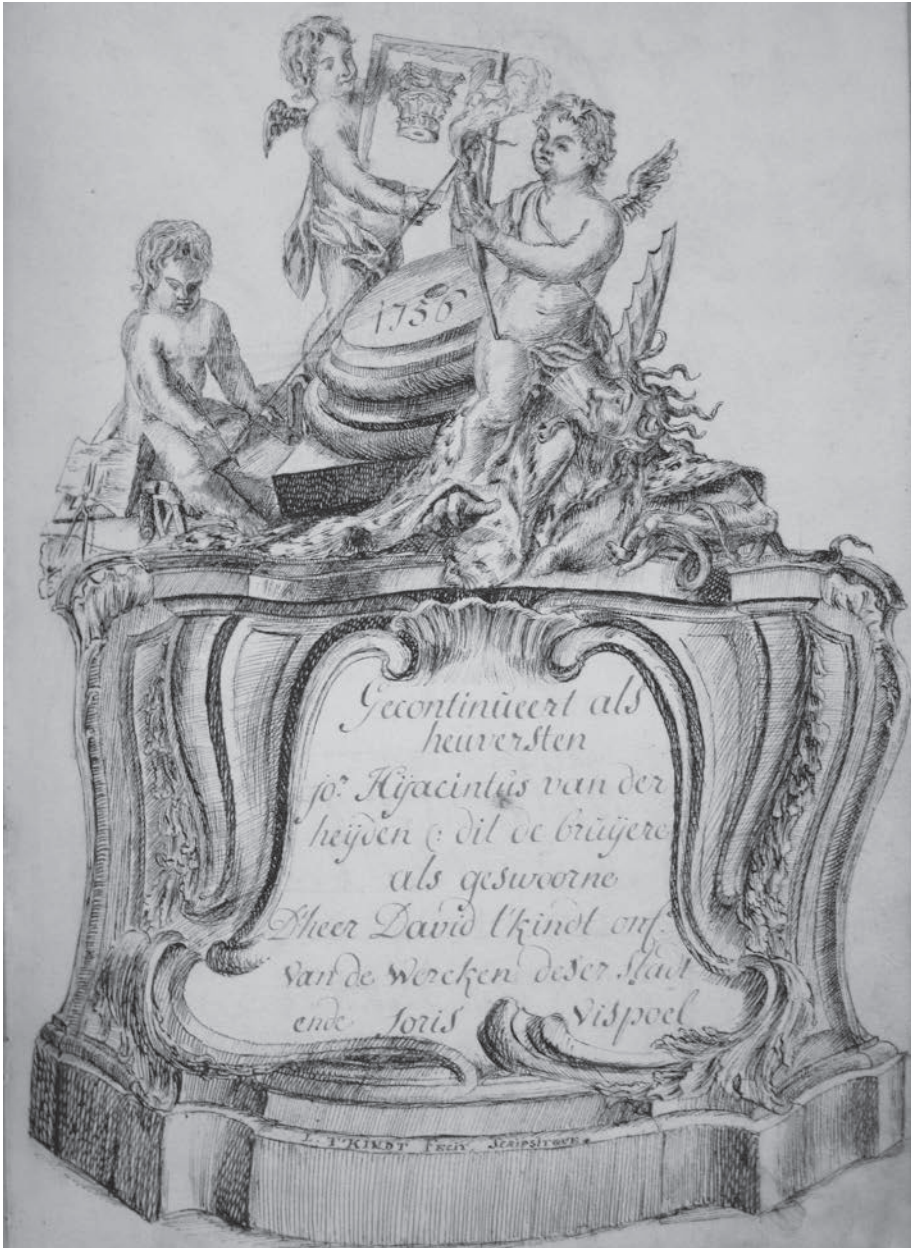 1756
Gecontinueert als
heuversten
jor. Hijacintus van der
heÿden c: dit de bruÿere
als geswoorne
D'heer David t'kindt onf:
Van de Wercken deser stadt
ende Joris Vispoel
L. T'KINDT Fecit. Scripsitque.